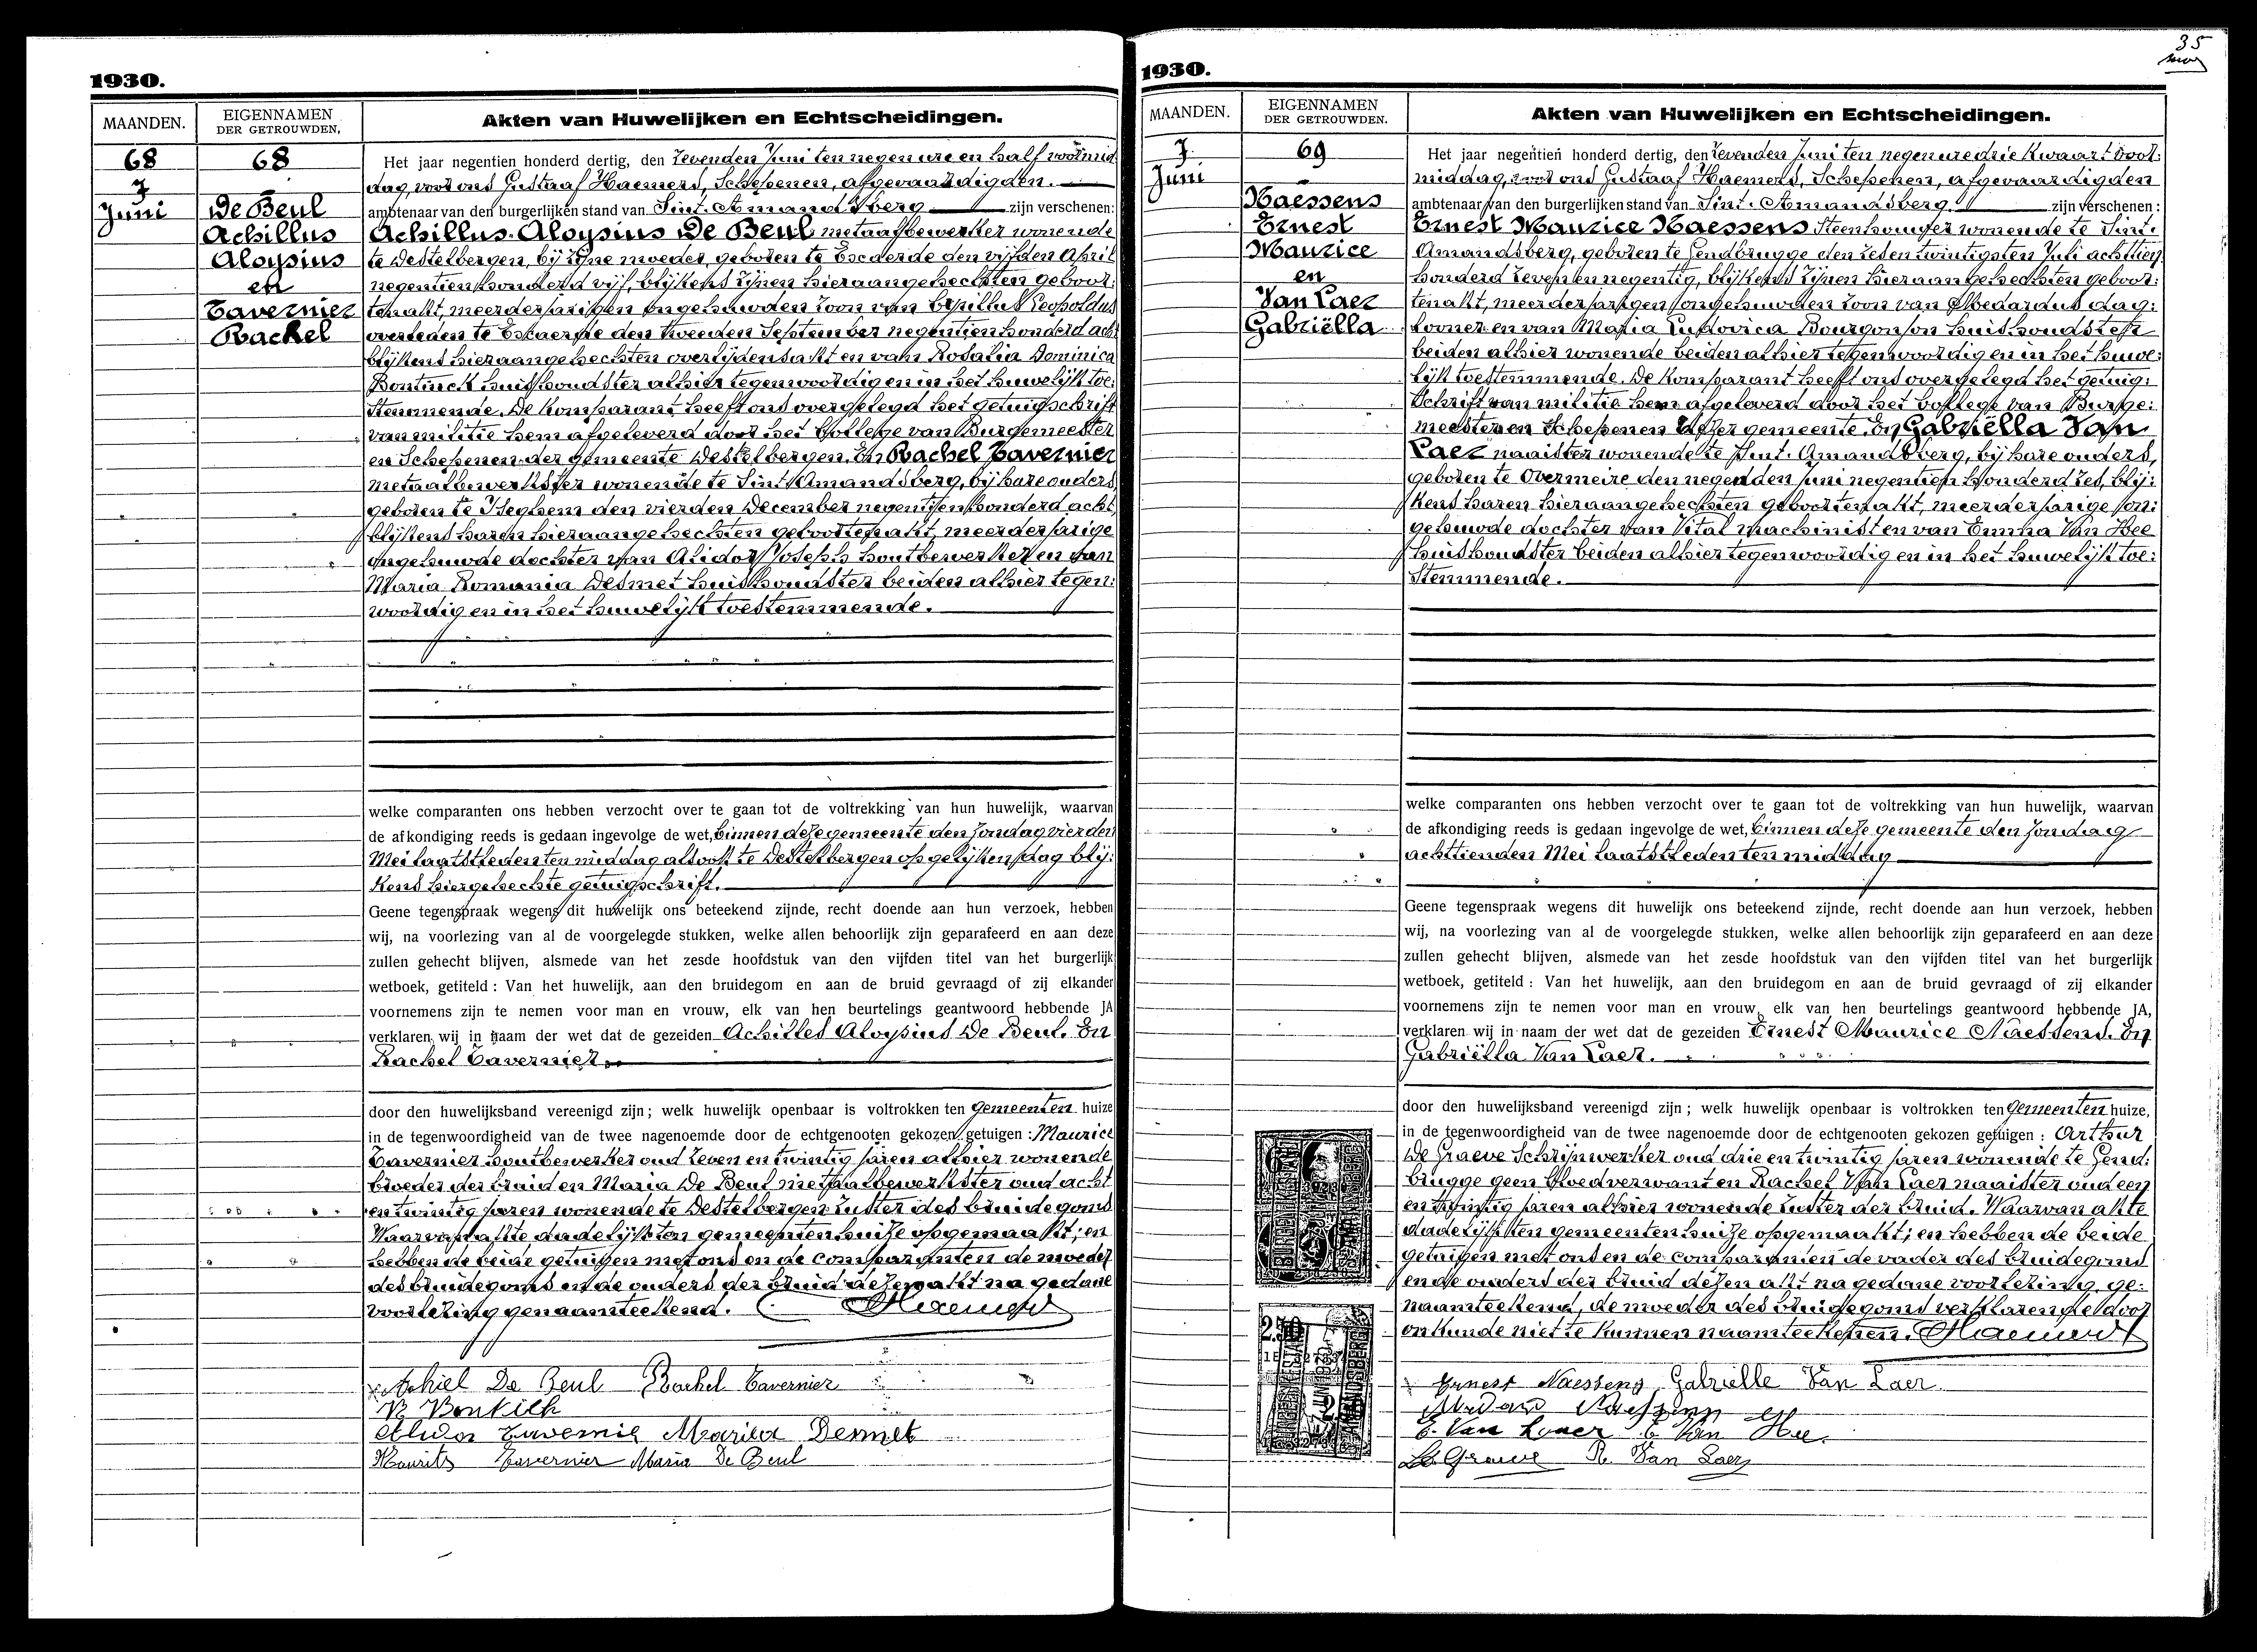 1930.
MAANDEN.
EIGENNAMEN
DER GETROUWDEN.
Akten van Huwelijken en Echtscheidingen.
68
68
7
Juni
De Beul
Achillus
Aloysius
en
Tavernier
Rachel
Het jaar negentien honderd dertig, den zevenden Juni ten negen ure en half voormid
dag, voor ons Gustaaf Haemers, Schepenen, afgevaardigden.
ambtenaar van den burgerlijken stand van Sint-Amandsberg zijn verschenen:
Achillus-Aloysius De Beul metaalbewerker wonende
te Destelbergen, bij zijne moeder, geboren te Escaerde den vijfden April
negentien honderd vijf, blijkens zijnen hieraangehechten geboor:
tenakt, meerderjarigen ongehuwden zoon van Cyrillus Leopoldus
overleden te Escaerde den tweeden September negentien honderd acht
blijkens hieraangehechten overlijdensakt en van Rosalia Dominica
Bontinck huishoudster alhier tegenwoordig en in het huwelijk toe:
stemmende. De komparant heeft ons overgelegd het getuigschrift
van militie hem afgeleverd door het College van Burgemeester
en Schepenen der gemeente Destelbergen. En Rachel Tavernier
metaalbewerkster wonende te Sint-Amandsberg, bij hare ouders,
geboren te Iseghem den vierden December negentien honderd acht,
blijkens haren hieraangehechten geboortenakt, meerderjarige
ongehuwde dochter van Alidor Joseph houtbewerker en van
Maria Romania Desmet huishoudster beiden alhier tegen:
woordig en in het huwelijk toestemmende.
welke comparanten ons hebben verzocht over te gaan tot de voltrekking van hun huwelijk, waarvan
de afkondiging reeds is gedaan ingevolge de wet, binnen deze gemeente den Zondag vierden
Mei laatstleden ten middag alsook te Destelbergen op gelijken dag blij:
kens hiergehechte getuigschrift.
Geene tegenspraak wegens dit huwelijk ons beteekend zijnde, recht doende aan hun verzoek, hebben
wij, na voorlezing van al de voorgelegde stukken, welke allen behoorlijk zijn geparafeerd en aan deze
zullen gehecht blijven, alsmede van het zesde hoofdstuk van den vijfden titel van het burgerlijk
wetboek, getiteld : Van het huwelijk, aan den bruidegom en aan de bruid gevraagd of zij elkander
voornemens zijn te nemen voor man en vrouw, elk van hen beurtelings geantwoord hebbende JA
verklaren wij in naam der wet dat de gezeiden Achilles Aloysius De Beul. En
Rachel Tavernier.
door den huwelijksband vereenigd zijn; welk huwelijk openbaar is voltrokken ten Gemeenten huize
in de tegenwoordigheid van de twee nagenoemde door de echtgenooten gekozen getuigen : Maurice
Tavernier houtbewerker oud zeven en twintig jaren alhier wonende
broeder der bruid en Maria De Beul metaalbewerkster oud acht
en twintig jaren wonende te Destelbergen zuster des bruidegoms
Waarvan akte dadelijk ten gemeentenhuize opgemaakt; en
hebben de beide getuigen met ons en de comparanten de moeder
des bruidegoms en de ouders der bruid dezen akt na gedane
voorlezing genaamteekend. Haemers
Achiel De Beul Rachel Tavernier
Alidor Tavernie Maria Desmet
Maurits Tavernier Maria De Beul
35
1930.
MAANDEN.
EIGENNAMEN
DER GETROUWDEN.
Akten van Huwelijken en Echtscheidingen.
7
Juni
69
Naessens
Ernest
Maurice
en
Van Laer
Gabriëlla
Het jaar negentien honderd dertig, den zevenden Juni ten negen ure drie kwaart voor:
middag, voor ons Gustaaf Haemers, Schepenen, afgevaardigden
ambtenaar van den burgerlijken stand van Sint-Amandsberg. zijn verschenen :
Ernest Maurice Naessens Steenhouwer wonende te Sint-
Amandsberg, geboren te Gendbrugge den zeden twintigsten Juli achttien
honderd zeven en negentig, blijkens zijnen hieraangehechten geboor:
tenakt, meerderjarigen ongehuwden zoon van Medardus dag:
looner en van Maria Ludovica Bourgonjon huishoudster
beiden alhier wonende beiden alhier tegenwoordig en in het huwe:
lijk toestemmende. De komparant heeft ons overgelegd het getuig:
schrift van militie hem afgeleverd door het College van Burge:
meester en Schepenen dezer gemeente. En Gabriëlla Van
Laer naaister wonende te Sint-Amandsberg, bij hare ouders,
geboren te Overmeire den negenden Juni negentien honderd zes, blij:
kens haren hieraangehechten geboortenakt, meerderjarige on:
gehuwde dochter van Vital machinist en van Emma Van Hee
huishoudster beiden alhier tegenwoordig en in het huwelijk toe:
stemmende.
welke comparanten ons hebben verzocht over te gaan tot de voltrekking van hun huwelijk, waarvan
de afkondiging reeds is gedaan ingevolge de wet, binnen deze gemeente den Zondag
achttienden Mei laatstleden ten middag
Geene tegenspraak wegens dit huwelijk ons beteekend zijnde, recht doende aan hun verzoek, hebben
wij, na voorlezing van al de voorgelegde stukken, welke allen behoorlijk zijn geparafeerd en aan deze
zullen gehecht blijven, alsmede van het zesde hoofdstuk van den vijfden titel van het burgerlijk
wetboek, getiteld : Van het huwelijk, aan den bruidegom en aan de bruid gevraagd of zij elkander
voornemens zijn te nemen voor man en vrouw, elk van hen beurtelings geantwoord hebbende JA,
verklaren wij in naam der wet dat de gezeiden Ernest Maurice Naessens. En
Gabriëlla Van Laer.
door den huwelijksband vereenigd zijn; welk huwelijk openbaar is voltrokken ten Gemeenten huize,
in de tegenwoordigheid van de twee nagenoemde door de echtgenooten gekozen getuigen : Arthur
De Graeve Schrijnwerker oud drie en twintig jaren wonende te Gend:
brugge geen bloedverwant en Rachel Van Laer naaister oud een
en twintig jaren alhier wonende zuster der bruid. Waarvan akte
dadelijk ten gemeentenhuize opgemaakt; en hebben de beide
getuigen met ons en de comparanten de vader des bruidegoms
en de ouders der bruid dezen akt na gedane voorlezing, ge:
naamteekend, de moeder des bruidegoms verklarende door
onkunde niet te kunnen naamteekenen. Haemers
Ernest Naessens Gabrielle Van Laer
E Van Hee.
De Graeve R. Van Laer